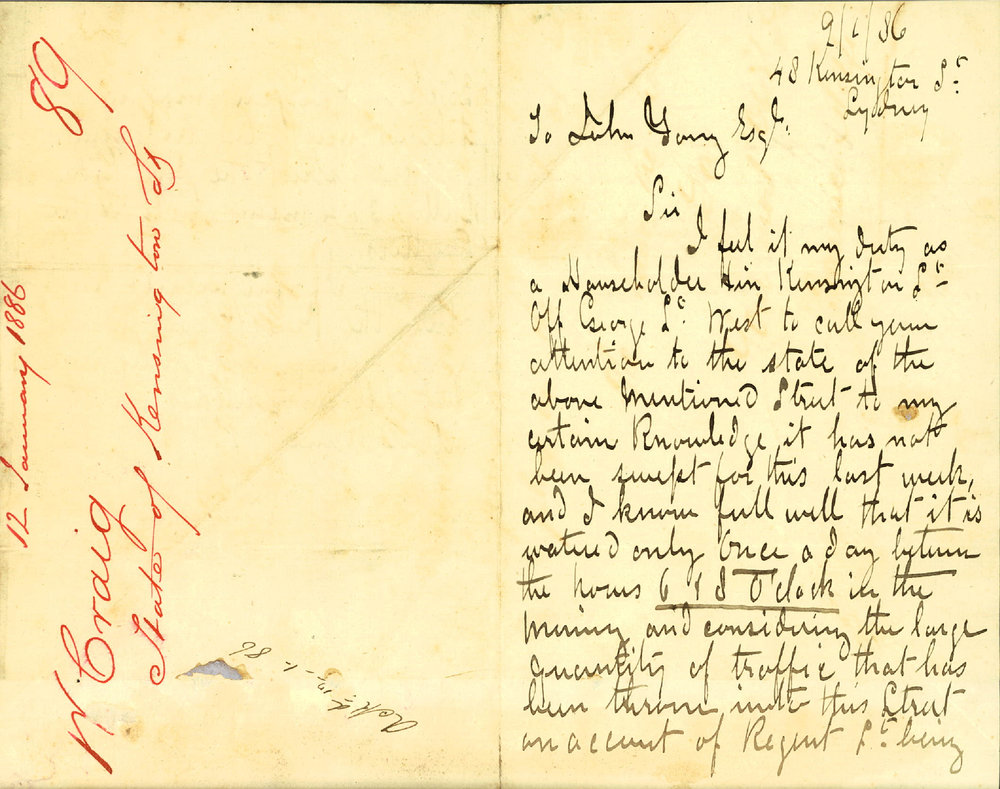 89
12 January 1886
W Craig
State of Kensington St
Ackd 12-1-86
9/1/86
48 Kensington St
Sydney
To John Young Esqr.
Sir
I feel it my duty as
a Householder in Kensington St
Off George St. West to call your
attention to the state of the
above Mentioned Street to my
certain Knowledge it has not
been swept for this last week,
and I know full well that it is
watered only Once a day between
the hours 6 & 8 O'clock in the
Morning and considering the large
quantity of traffic that has
been thrown into this Street
on account of Regent St. being